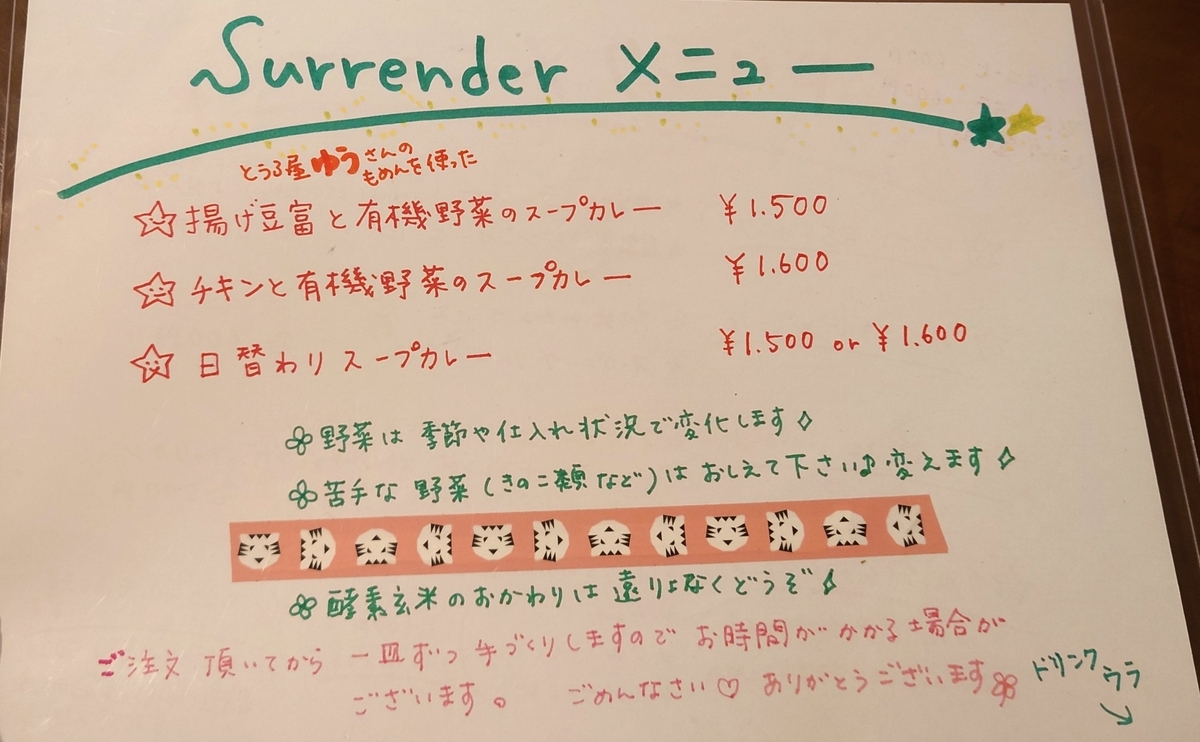 Surrender メニュー
とうふ屋ゆうさんの
もめんを使った
揚げ豆富と有機野菜のスープカレー ¥1.500
チキンと有機野菜のスープカレー ¥1.600
日替わりスープカレー ¥1.500 or ¥1.600
野菜は季節や仕入れ状況で変化します
苦手な野菜(きのこ類など)はおしえて下さい♪変えます
酵素玄米のおかわりは遠りょなくどうぞ
ご注文頂いてから一皿ずつ手づくりしますのでお時間がかかる場合が
ございます。 ごめんなさい♡ ありがとうございます
ドリンク
ウラ
↘